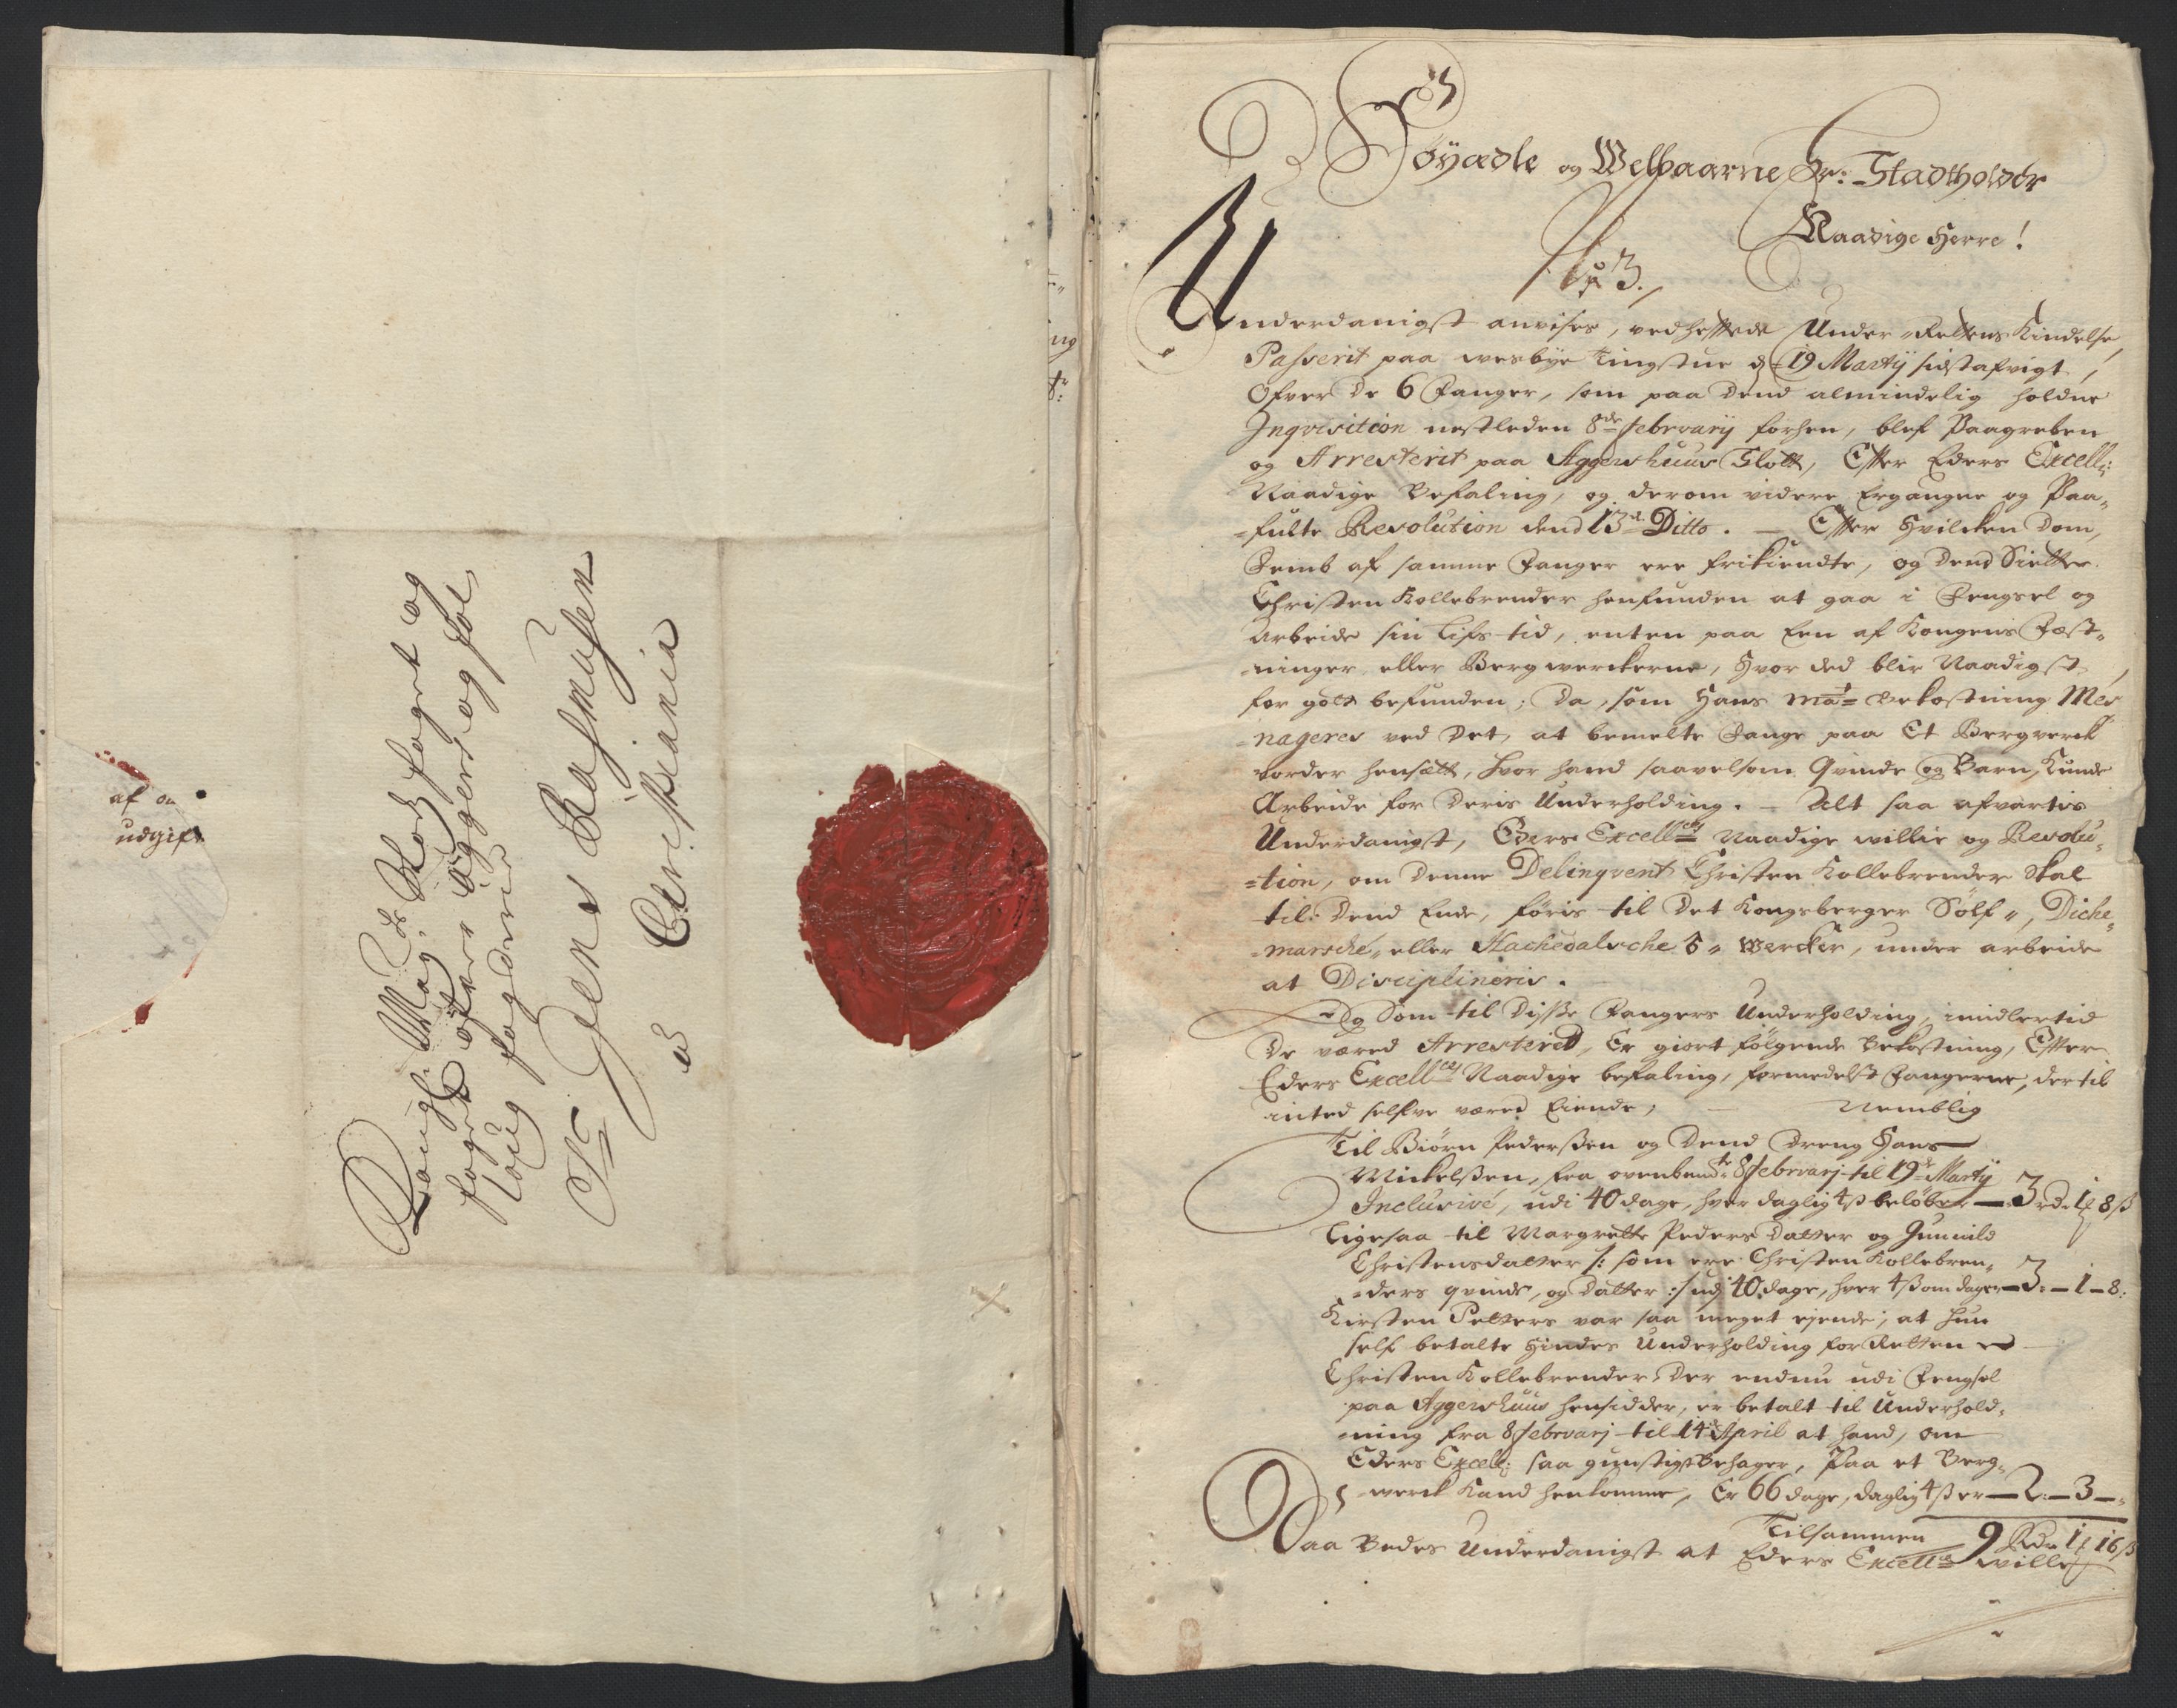 af o
udgift
Kongl: Mayts: Slodtzfoget og
foget ofver Aggers og fol
loug fogderie
Sr Jens Rasmusen
a Christiania
Höÿædle og Welbaarne Hr: Stadtholder
Naadige Herre!
No 3.
Underdanigst anvises, vedheftede Under-Rettens Kindelse,
Passerit paa wesbÿe tingstue d: 19 Martÿ sidstafvigt,
Ofver De 6 Fanger, som paa dend almindelig holdne
Inqvisition nestleden 8de febrvarÿ forhen, blef Paagreben
og Arresterit paa Aggershuus Slott, Efter Eders Excell:
Naadige Befaling, og derom videre Ergangne og Paa-
-fulte Resolution dend 13de Ditto. — Efter hvilcken Dom,
Femb af samme Fanger ere frikiendte, og dend Siette
Christen Kollebrender henfunden at gaa i Fengsel og
Arbeide sin lifs-tid, enten paa Een af Kongens Fæst-
-ninger eller Bergwerckerne, hvor ded blir Naadigst
for got befunden; Da, som Hans Mats bekostning Mes
-nageres ved det, at bemelte Fange paa Et Bergverck
vorder hensatt, hvor hand saavelsom Qvinde og Barn, Kunde
Arbeide for deris Underholding. — Alt saa afvartis
Underdanigst, Eders Excellces Naadige willie og Resolu-
-tion, om denne Delinqvent Christen Kollebrender Skal
til dend Ende, föris til det Kongsberger Sölf-, Diche-
-marsche, eller Hachedalsche J- wercker, under arbeide
at Disciplineris.
Og Som til disse Fangers Underholding, imidlertid
De væred Arresterit, Er giort fölgende bekostning, Efter
Eders Excellces Naadige befaling, formedelst Fangerne, der til
inted selfve væred Eiende; — Nemblig
Til Biörn Pederssen og dend dreng Hans
Mickelssen, fra ovenbemte 8 febrvarj til 19de Martÿ
Inclusivé, udi 40 dage, hver daglig 4 ß belöber — 3 rd 1 8 ß
Ligesaa til Margrette Peders datter og Gunnild
Christensdatter /: som ere Christen Kollebren-
-ders qvinde, og datter :/ udj 40 dage, hver 4 ß om dagen — 3: — 1 — 8:
Kirsten Petters var saa meget ejende, at hun
self betalte hindes Underholding for Retten
Christen Kollebrender, der endnu udi Fengsel
paa Aggershuus hensidder, er betalt til Underhold-
-ning fra 8 febrvarj til 14de April at hand, om
Eders Excell: saa gunstigst behager, Paa et Berg-
-werck Kand henkomme, Er 66 dage, daglig 4 ß er — 2: — 3 —
Tilsammen 9 Rdr 1 16 ß
Saa Bedes Underdanigst at Eders Excellces wille